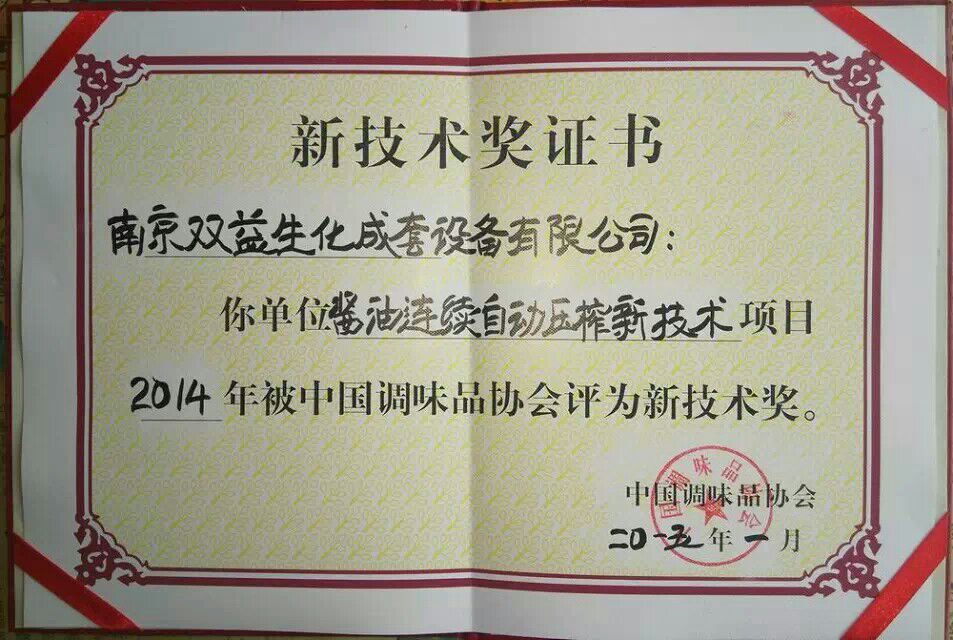 新技术奖证书
南京双益生化成套设备有限公司：
你单位酱油连续自动压榨新技术项目
2014年被中国调味品协会评为新技术奖。
中国调味品协会
二〇一五年一月